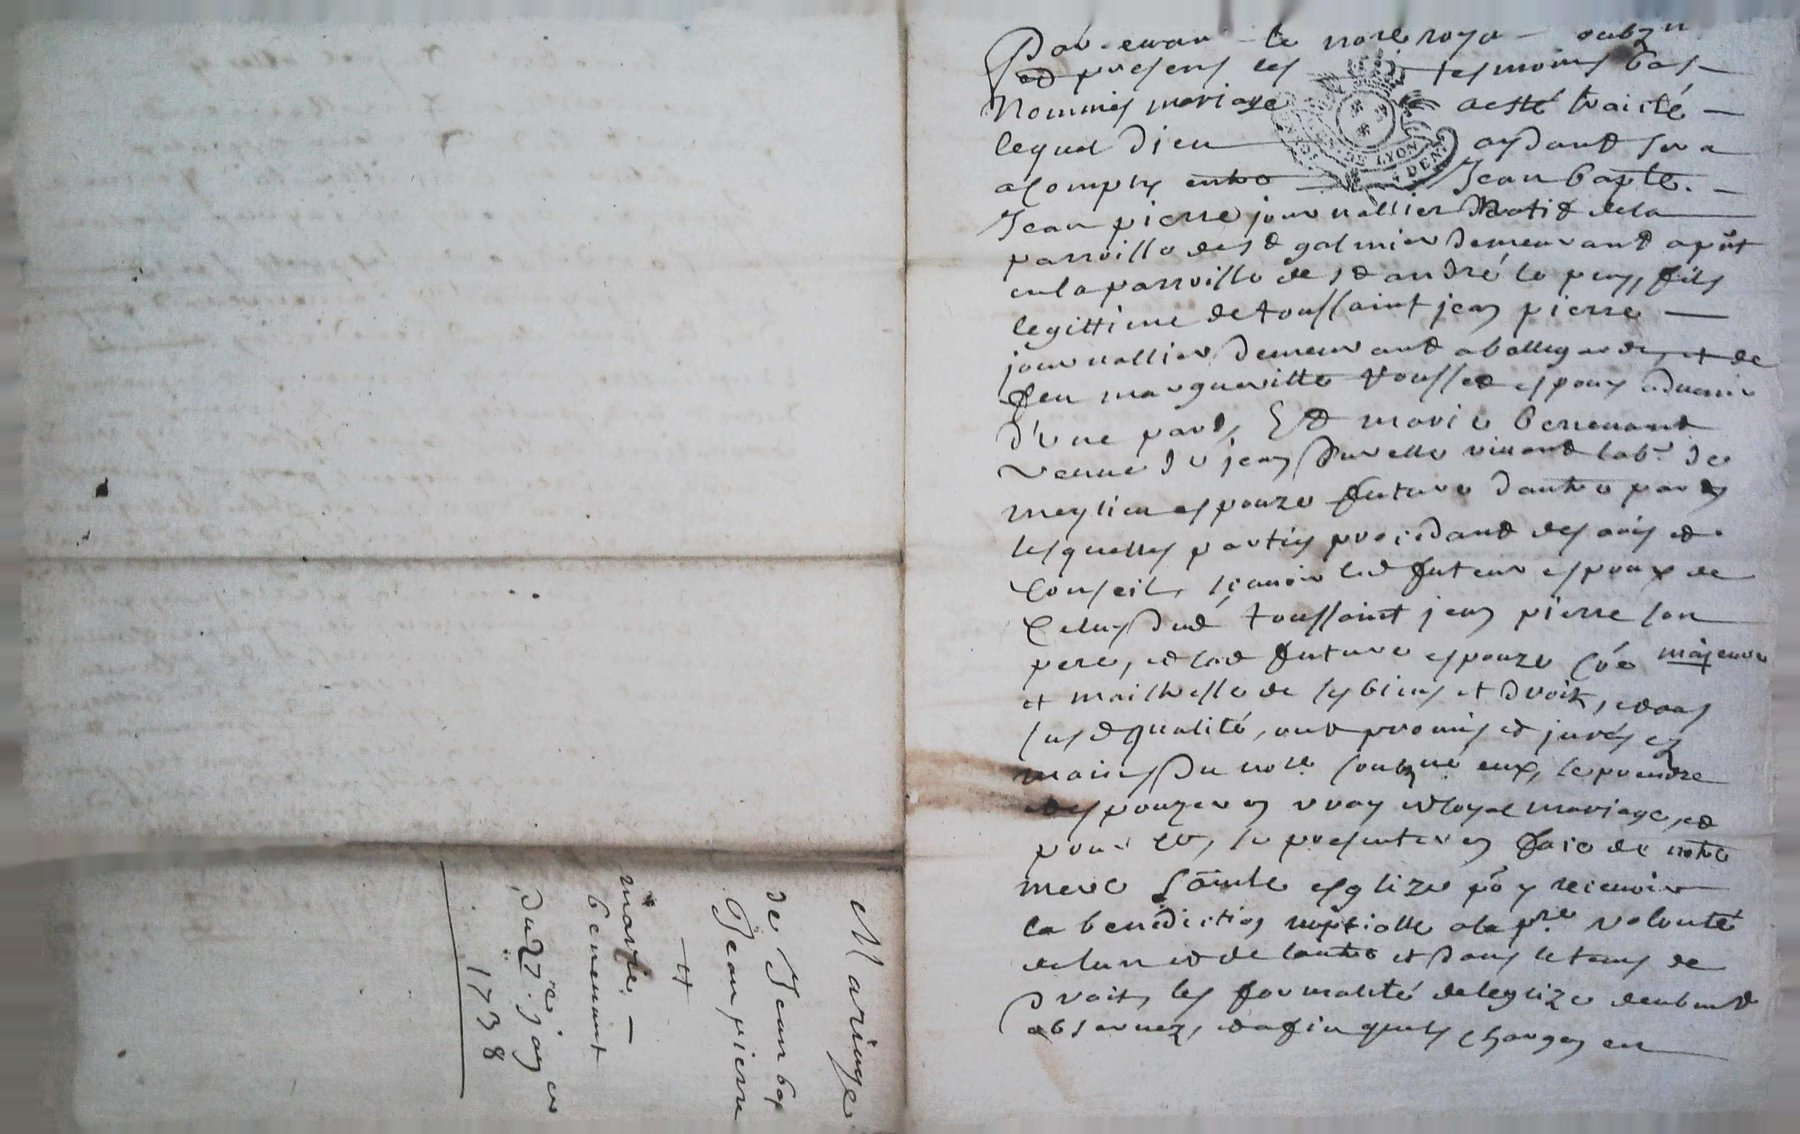 Par devant le nore royal soubzné
et presens les tesmoins bas
Nommés mariage a esté traité
lequel Dieu aydant sera
acomply entre Jean bapte.
Jean pierre journallier Natif de la
parroisse de st galmier demeurant apñt
en la parroisse de st andré le puy, fils
legittime de toussaint jean pierre
journallier demeurant a bellegarde, et de
feu margueritte Housset espoux advenir
d'une part, Et marie benevant
veuve de jean Duvelle vivant labr. de
meylieu espouze future d'autre part
lesquelles parties procedant des avis et
Conseil, sçavoir led futeur espoux de
Celuy dud toussaint jean pierre son
pere, et lad future espouze côe majeure
et maitresse de ses biens et droits, et aux
susd qualité, ont promis et jurés es
mains du nore soubzné eux, se prendre
et espouzer en vray et loyal mariage, et
pour ce, se presenter en face de notre
mere sainte esglize po y recevoir
la benediction nuptialle a la pre volonté
de lun et de lautre et dans le tems de
droit, les formalité de leglize deubmt
observez, et afin quels charges en
Mariage
de Jean bap
Jean pierre
et
marie
benevant
Du 27e janer
1738
DE LYON